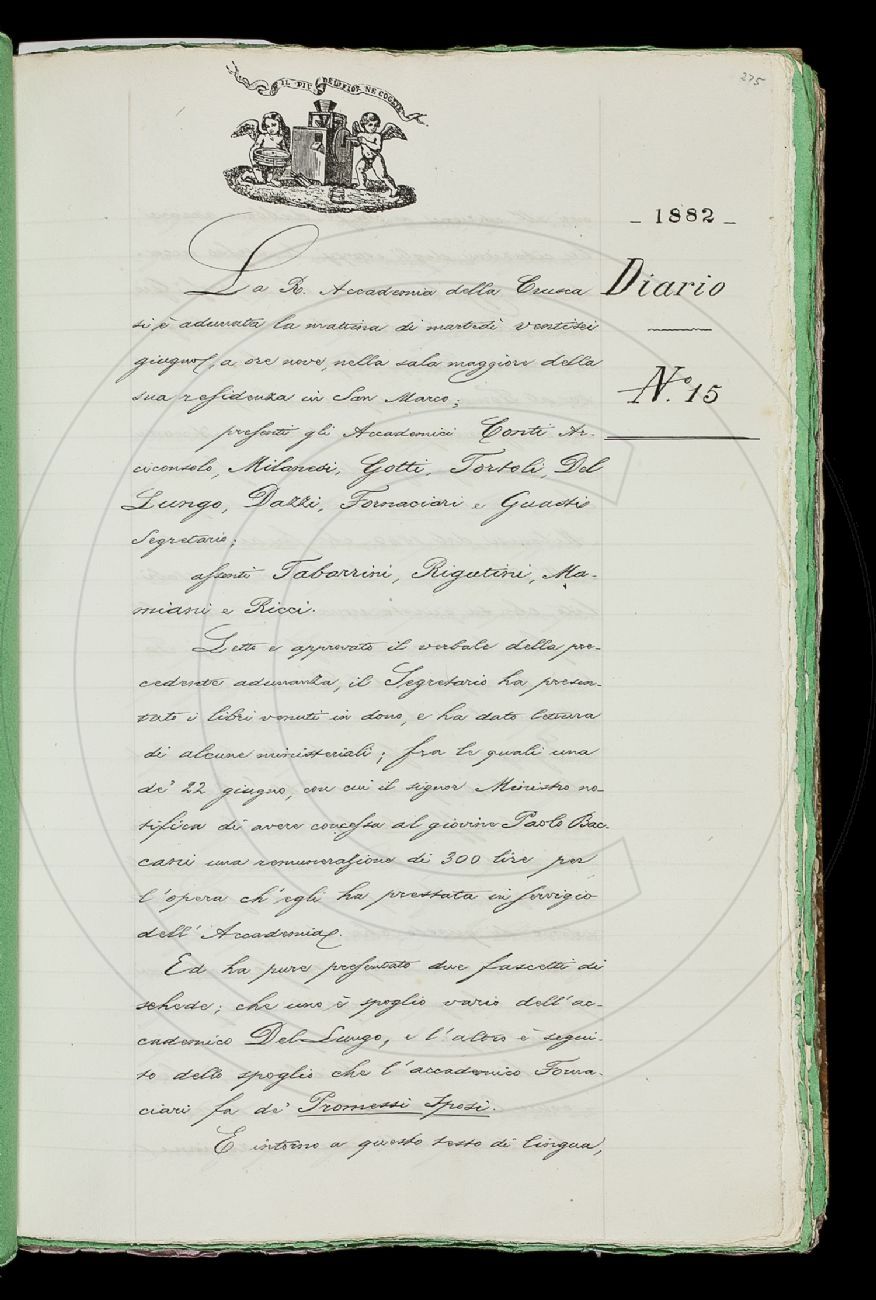 275
IL PIÙ BEL FIOR NE COGLIE
- 1882 -
Diario
N.º 15
La R. Accademia della Crusca
si è adunata la mattina di martedì ventisei
giugno, a ore nove, nella sala maggiore della
sua residenza in San Marco;
presenti gli Accademici Conti Ar-
ciconsolo, Milanesi, Gotti, Tortoli, Del
Lungo, Dazzi, Fornaciari e Guasti
Segretario;
assenti Tabarrini, Rigutini, Ma-
miani e Ricci.
Letto e approvato il verbale della pre-
cedente adunanza, il Segretario ha presen-
tato i libri venuti in dono, e ha dato lettura
di alcune ministeriali; fra le quali una
de' 22 giugno, con cui il signor Ministro no-
tifica di avere concessa al giovine Paolo Bac-
cani una remunerazione di 300 lire per
l'opera ch'egli ha prestata in servigio
dell'Accademia.
Ed ha pure presentato due fascetti di
schede; che uno è spoglio vario dell'ac-
cademico Del Lungo, e l'altro è segui-
to dello spoglio che l'accademico Forna-
ciari fa de' Promessi Sposi.
E intorno a questo testo di lingua,